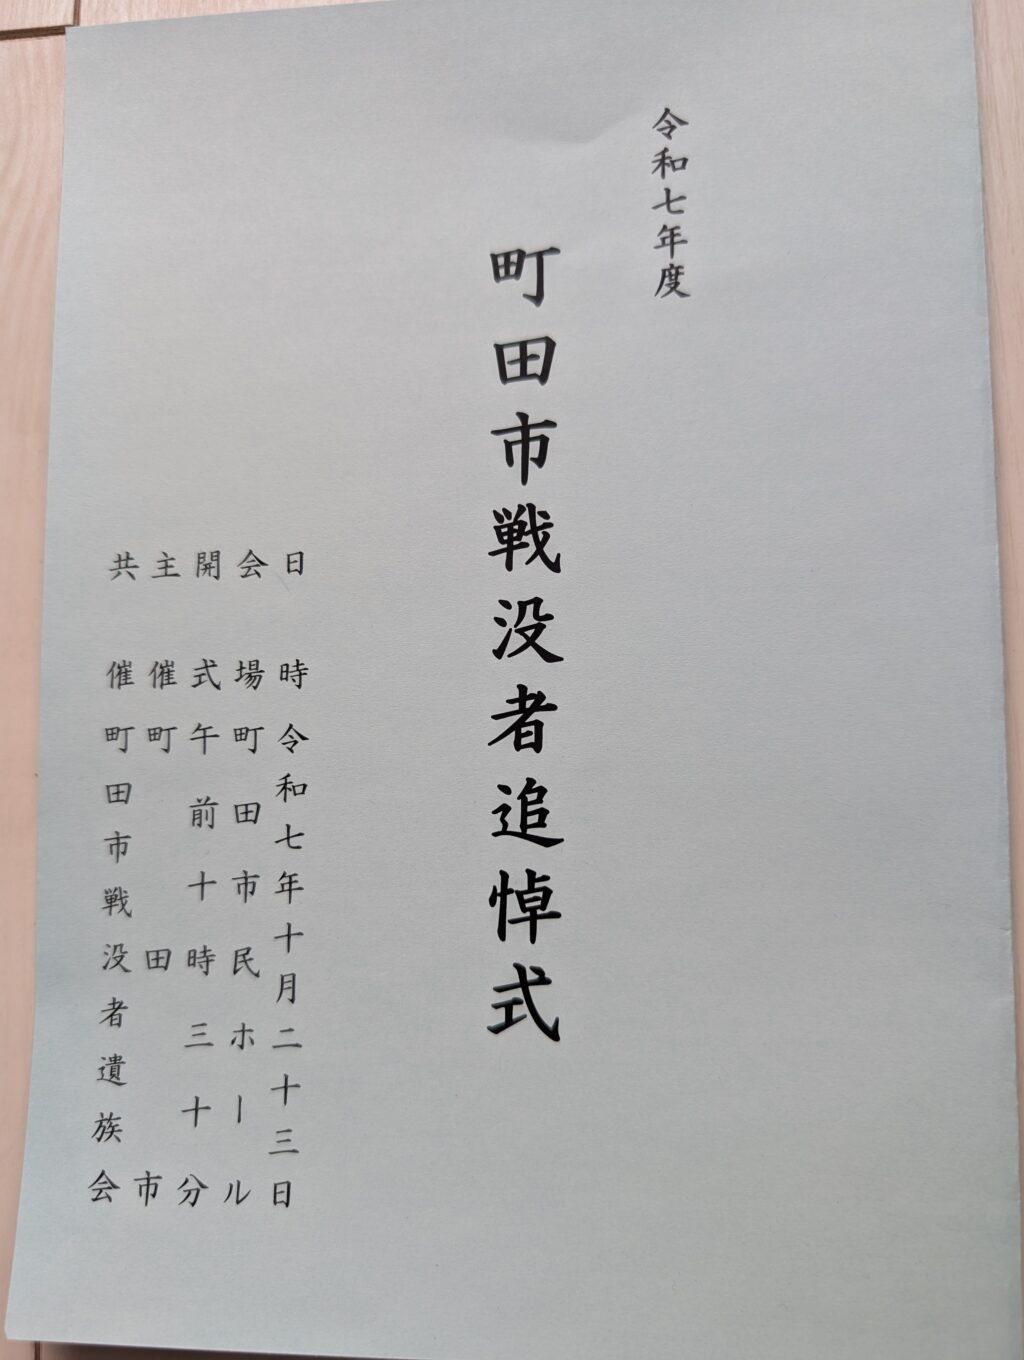 令和七年度
町田市戦没者追悼式
日時 令和七年十月二十三日
会場 町田市民ホール
開式 午前十時三十分
主催 町田市
共催 町田市戦没者遺族会